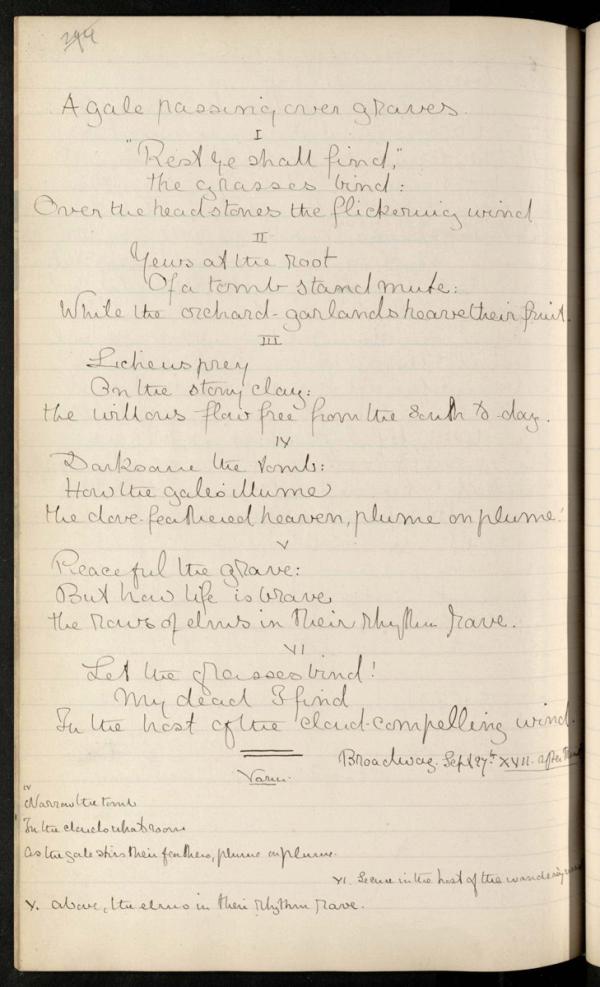 A gale passing over graves.
I
"Rest ye shall find,"
The grasses bind:
Over the headstones the flickering wind
II
Yews at the root
Of a tomb stand mute:
While the orchard-garlands heave their fruit.
III
Lichens prey
On the stony clay:
The willows flow free from the South to-day.
IV
Darksome the tomb:
How the gales illume
The dove-feathered heaven, plume on plume!
V
Peaceful the grave:
But how life is brave
The rows of elms in their rhythm rave.
VI
Let the grasses bind!
My dead I find
In the host of the cloud-compelling wind.
Broadway. Sept 27th XVII. after
Varn.
IV
Narrow the tomb
In the clouds what room
As the gale stirs their feathers, plume on plume.
VI. Secure in the host of the wandering
V. above, the elms in their rhythm rave.